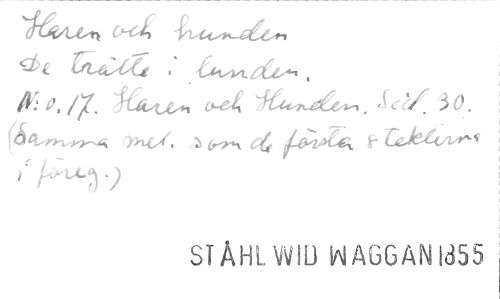 Haren och hunden
De trätte i lunden.
N:o. 17. Haren och Hunden. Sid. 30.
(Samma mel. som de första 8 takterna
i föreg.)
STÅHL WID WAGGAN 1855